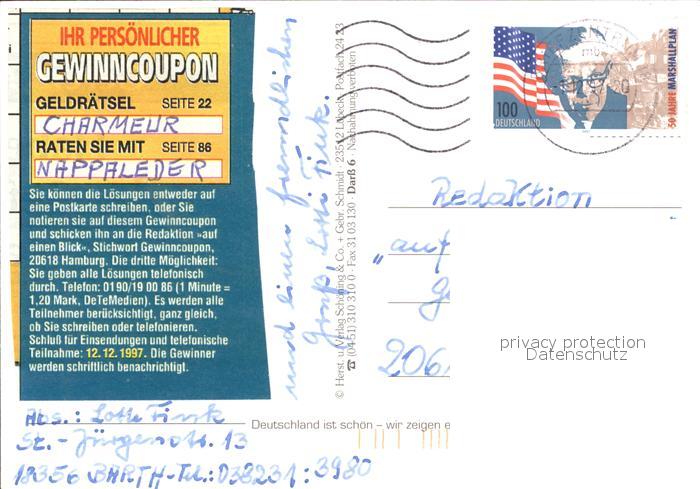 IHR PERSÖNLICHER
GEWINNCOUPON
GELDRÄTSEL SEITE 22
CHARMEUR
RATEN SIE MIT SEITE 86
NAPPALEDER
Sie können die Lösungen entweder auf
eine Postkarte schreiben, oder Sie
notieren sie auf diesem Gewinncoupon
und schicken ihn an die Redaktion »auf
einen Blick«, Stichwort Gewinncoupon,
20618 Hamburg. Die dritte Möglichkeit:
Sie geben alle Lösungen telefonisch
durch. Telefon: 0190/19 00 86 (1 Minute =
1,20 Mark, DeTeMedien). Es werden alle
Teilnehmer berücksichtigt, ganz gleich,
ob Sie schreiben oder telefonieren.
Schluß für Einsendungen und telefonische
Teilnahme: 12.12.1997. Die Gewinner
werden schriftlich benachrichtigt.
und einen freundlichen
Gruß, Lotte Fink.
© Herst. u. Verlag Schöning & Co. + Gebr. Schmidt · 23512 Lübeck · Postfach 24 23
☎ (04 51) 310 310 0 · Fax 31 03 130 · Darß 6 · Nachahmung verboten
100
DEUTSCHLAND
50 JAHRE MARSHALLPLAN
Redaktion
„auf
206
privacy protection
Datenschutz
Abs.: Lotte Fink
St.-Jürgenstr. 13
18356 BARTH-Tel.: 038231:3980
Deutschland ist schön – wir zeigen e